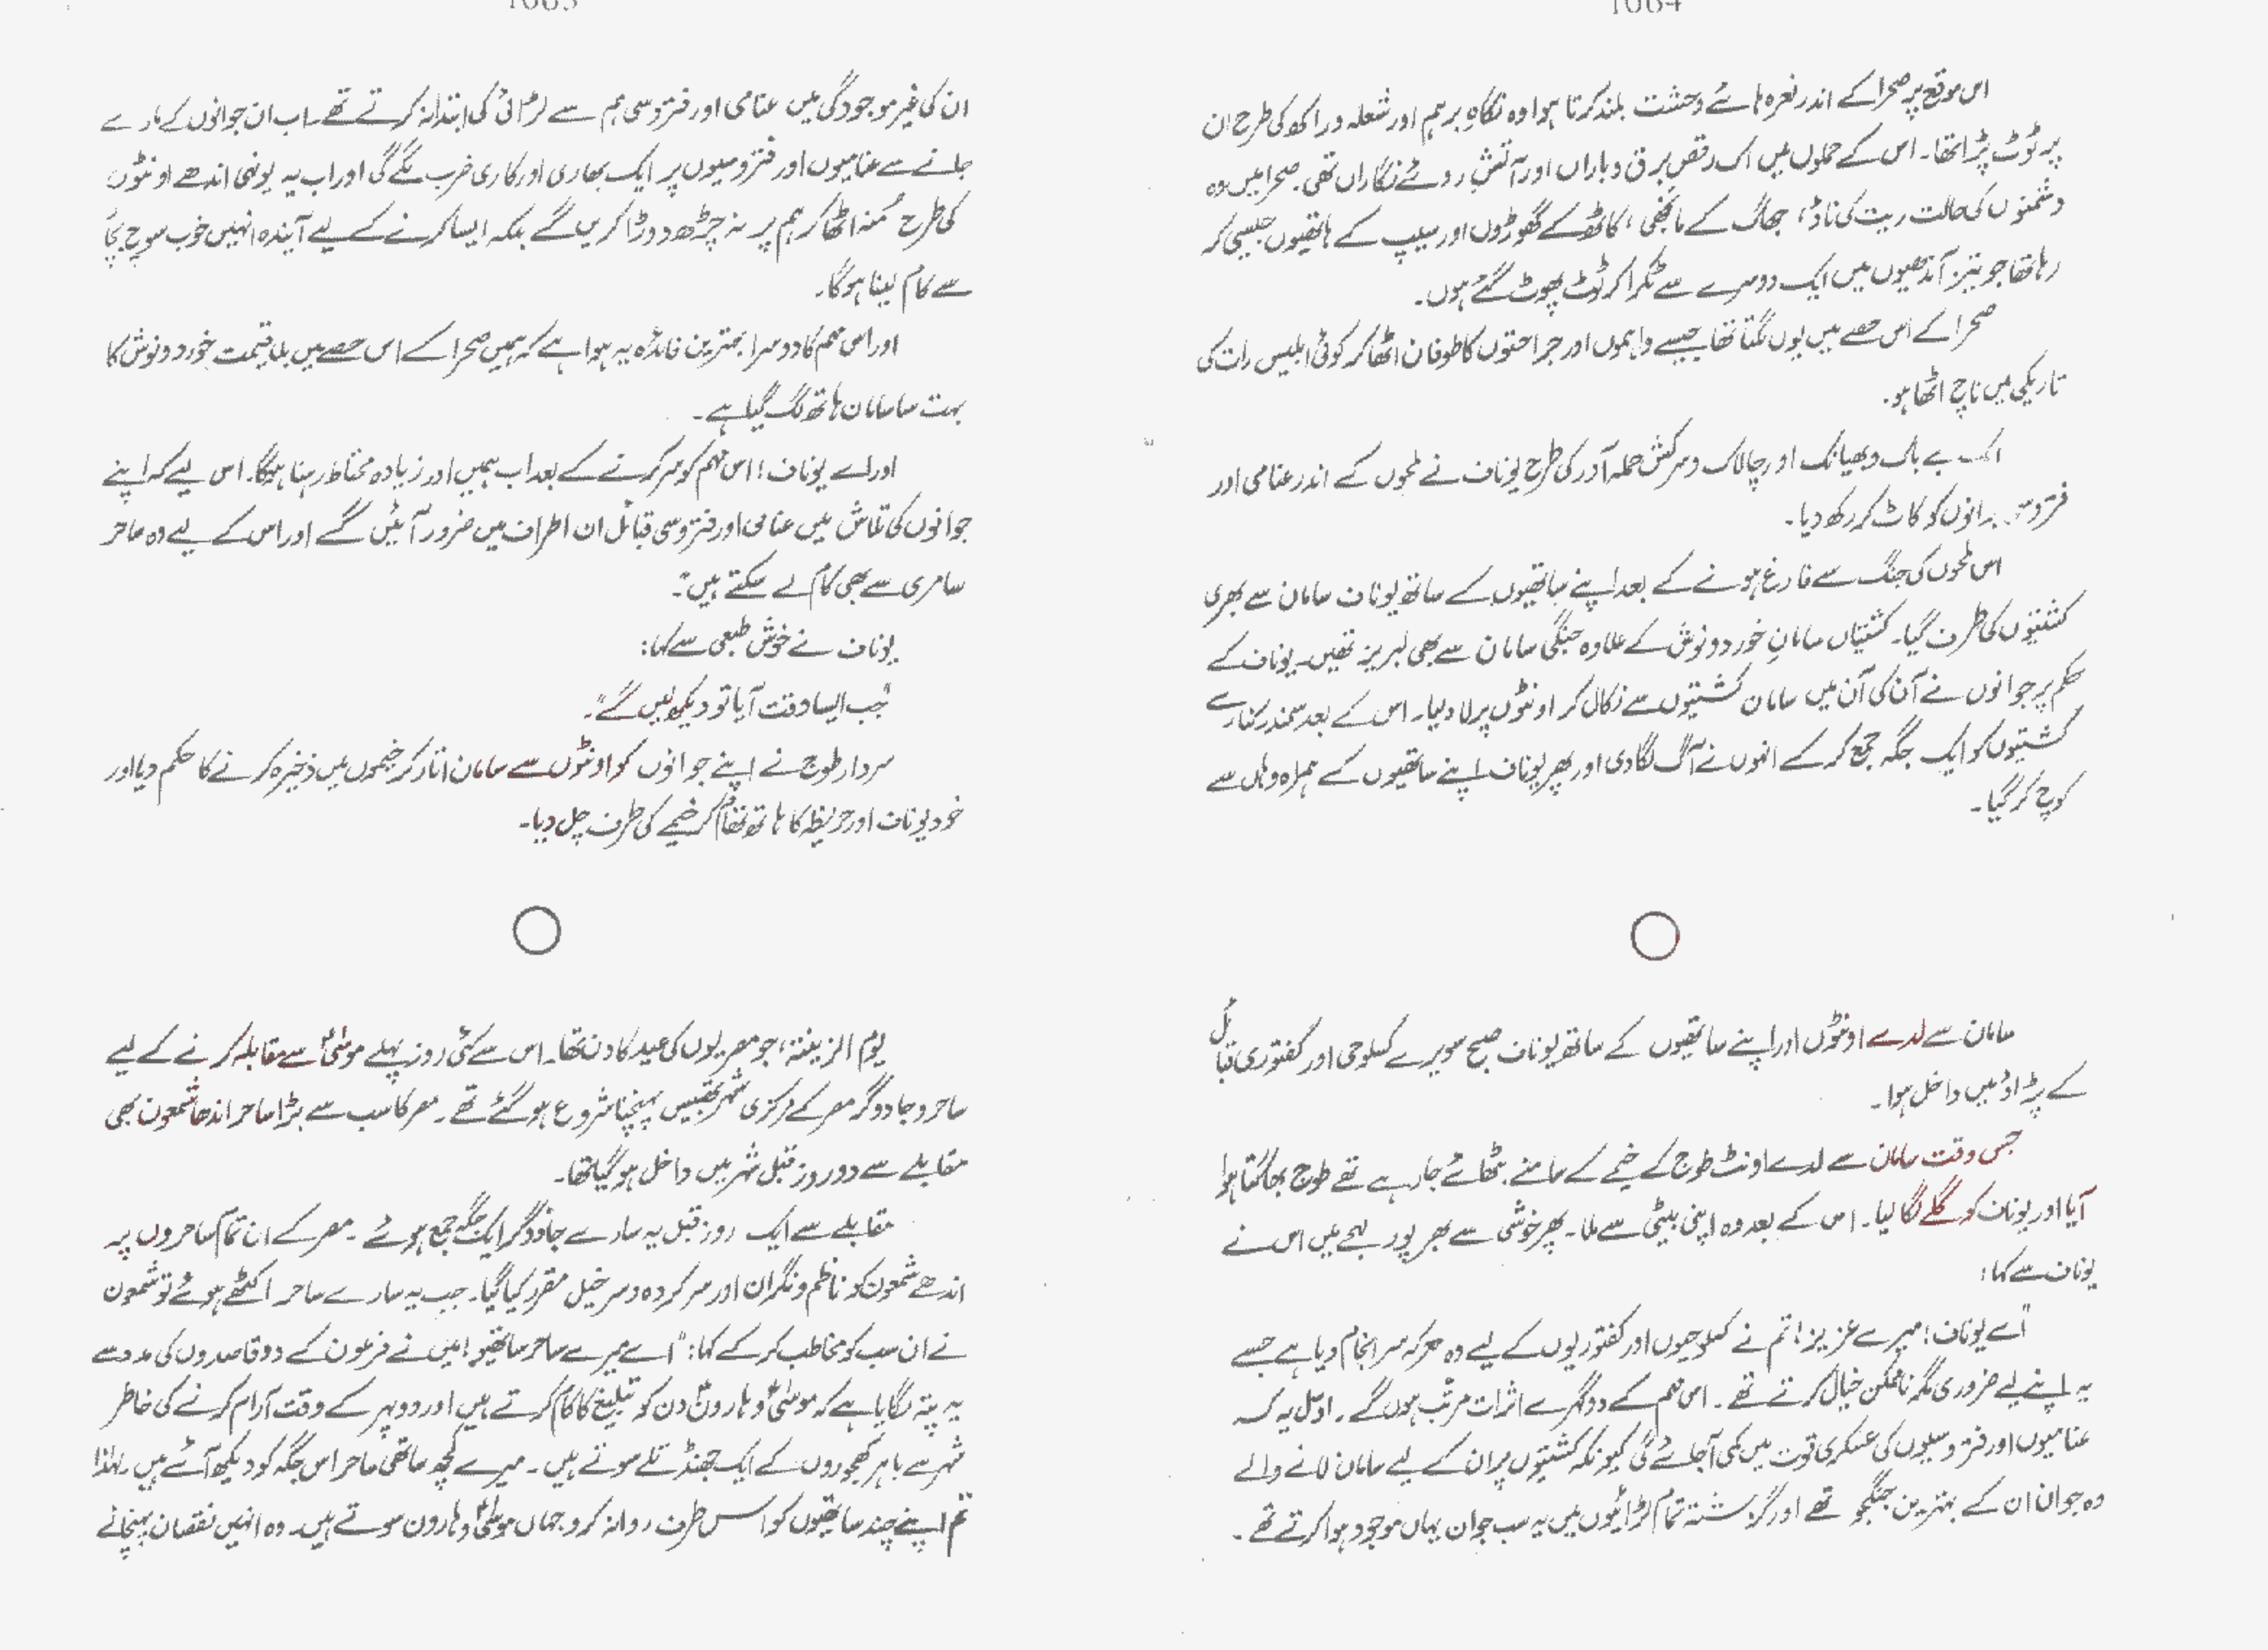 1064
اس موقع پر صحرا کے اندر نعرہ ہائے وحشت بلند کرتا ہوا وہ نگاہِ برہم اور شعلہ و راکھ کی طرح ان
پر ٹوٹ پڑا تھا۔ اس کے حملوں میں اک رقصِ برق و باراں اور آتشِ روئے نگاراں تھی۔ صحرا میں وہ
دشمنوں کی حالت ریت کی ناؤ، جھاگ کے مانجھی، کاٹھ کے گھوڑوں اور سیپ کے ہاتھیوں جیسی کر
رہا تھا جو تیز آندھیوں میں ایک دوسرے سے ٹکرا کر ٹوٹ پھوٹ گئے ہوں۔
صحرا کے اس حصے میں یوں لگتا تھا جیسے واہموں اور جراحتوں کا طوفان اٹھا کر کوئی ابلیس رات کی
تاریکی میں ناچ اٹھا ہو۔
اک بے باک و بھیانک اور چالاک و سرکش حملہ آور کی طرح یوناف نے لمحوں کے اندر عنامی اور
جوانوں کو کاٹ کر رکھ دیا۔
اس لمحوں کی جنگ سے فارغ ہونے کے بعد اپنے ساتھیوں کے ساتھ یوناف سامان سے بھری
کشتیوں کی طرف گیا۔ کشتیاں سامانِ خورد و نوش کے علاوہ جنگی سامان سے بھی لبریز تھیں۔ یوناف کے
حکم پر جوانوں نے آن کی آن میں سامان کشتیوں سے نکال کر اونٹوں پر لاد لیا۔ اس کے بعد سمندر کنارے
کشتیوں کو ایک جگہ جمع کر کے انہوں نے آگ لگا دی اور پھر یوناف اپنے ساتھیوں کے ہمراہ وہاں سے
کوچ کر گیا۔
سامان سے لدے اونٹوں اور اپنے ساتھیوں کے ساتھ یوناف صبح سویرے کسلوحی اور کفتوری قبائل
کے پڑاؤ میں داخل ہوا۔
جس وقت سامان سے لدے اونٹ طوج کے خیمے کے سامنے بٹھائے جا رہے تھے طوج بھاگتا ہوا
آیا اور یوناف کو گلے لگا لیا۔ اس کے بعد وہ اپنی بیٹی سے ملا۔ پھر خوشی سے بھرپور لہجے میں اس نے
یوناف سے کہا:
"اے یوناف! میرے عزیز! تم نے کسلوحیوں اور کفتوریوں کے لیے وہ معرکہ سرانجام دیا ہے جسے
یہ اپنے لیے ضروری مگر ناممکن خیال کرتے تھے۔ اس مہم کے دو گہرے اثرات مرتب ہوں گے۔ اول یہ کہ
عنامیوں اور فتروسیوں کی عسکری قوت میں کمی آ جائے گی کیونکہ کشتیوں پر ان کے لیے سامان لانے والے
وہ جوان ان کے بہترین جنگجو تھے اور گزشتہ تمام لڑائیوں میں یہ سب جوان یہاں موجود ہوا کرتے تھے۔
1065
ان کی غیر موجودگی میں عنامی اور فتروسی ہم سے لڑائی کی ابتدا نہ کرتے تھے۔ اب ان جوانوں کے مارے
جانے سے عنامیوں اور فتروسیوں پر ایک بھاری اور کاری ضرب لگے گی اور اب یہ یونہی اندھے اونٹوں
کی طرح منہ اٹھا کر ہم پر نہ چڑھ دوڑا کریں گے بلکہ ایسا کرنے کے لیے آیندہ انہیں خوب سوچ بچار
سے کام لینا ہو گا۔
اور اس مہم کا دوسرا بہترین فائدہ یہ ہوا ہے کہ ہمیں صحرا کے اس حصے میں بلا قیمت خورد و نوش کا
بہت سا سامان ہاتھ لگ گیا ہے۔
اور اے یوناف! اس مہم کو سر کرنے کے بعد اب ہمیں اور زیادہ محتاط رہنا ہوگا۔ اس لیے کہ اپنے
جوانوں کی تلاش میں عنامی اور فتروسی قبائل ان اطراف میں ضرور آئیں گے اور اس کے لیے وہ ساحر
سامری سے بھی کام لے سکتے ہیں۔"
یوناف نے خوش طبعی سے کہا:
"جب ایسا وقت آیا تو دیکھ لیں گے"۔
سردار طوج نے اپنے جوانوں کو اونٹوں سے سامان اتار کر خیموں میں ذخیرہ کرنے کا حکم دیا اور
خود یوناف اور حریظہ کا ہاتھ تھام کر خیمے کی طرف چل دیا۔
یوم الزینتہ، جو مصریوں کی عید کا دن تھا۔ اس سے کئی روز پہلے موسیٰؑ سے مقابلہ کرنے کے لیے
ساحر و جادوگر مصر کے مرکزی شہر تھیبس پہنچنا شروع ہو گئے تھے۔ مصر کا سب سے بڑا ساحر اندھا شمعون بھی
مقابلے سے دو روز قبل شہر میں داخل ہو گیا تھا۔
مقابلے سے ایک روز قبل یہ سارے جادوگر ایک جگہ جمع ہوئے۔ مصر کے ان تمام ساحروں پر
اندھے شمعون کو ناظم و نگران اور سرکردہ و سرخیل مقرر کیا گیا۔ جب یہ سارے ساحر اکٹھے ہوئے تو شمعون
نے ان سب کو مخاطب کر کے کہا: "اے میرے ساحر ساتھیو! میں نے فرعون کے دو قاصدوں کی مدد سے
یہ پتہ لگایا ہے کہ موسیٰؑ و ہارونؑ دن کو تبلیغ کا کام کرتے ہیں اور دوپہر کے وقت آرام کرنے کی خاطر
شہر سے باہر کھجوروں کے ایک جھنڈ تلے سوتے ہیں۔ میرے کچھ ساتھی ساحر اس جگہ کو دیکھ آئے ہیں۔ لہٰذا
تم اپنے چند ساتھیوں کو اس طرف روانہ کرو جہاں موسیٰؑ و ہارون سوتے ہیں۔ وہ انہیں نقصان پہنچانے